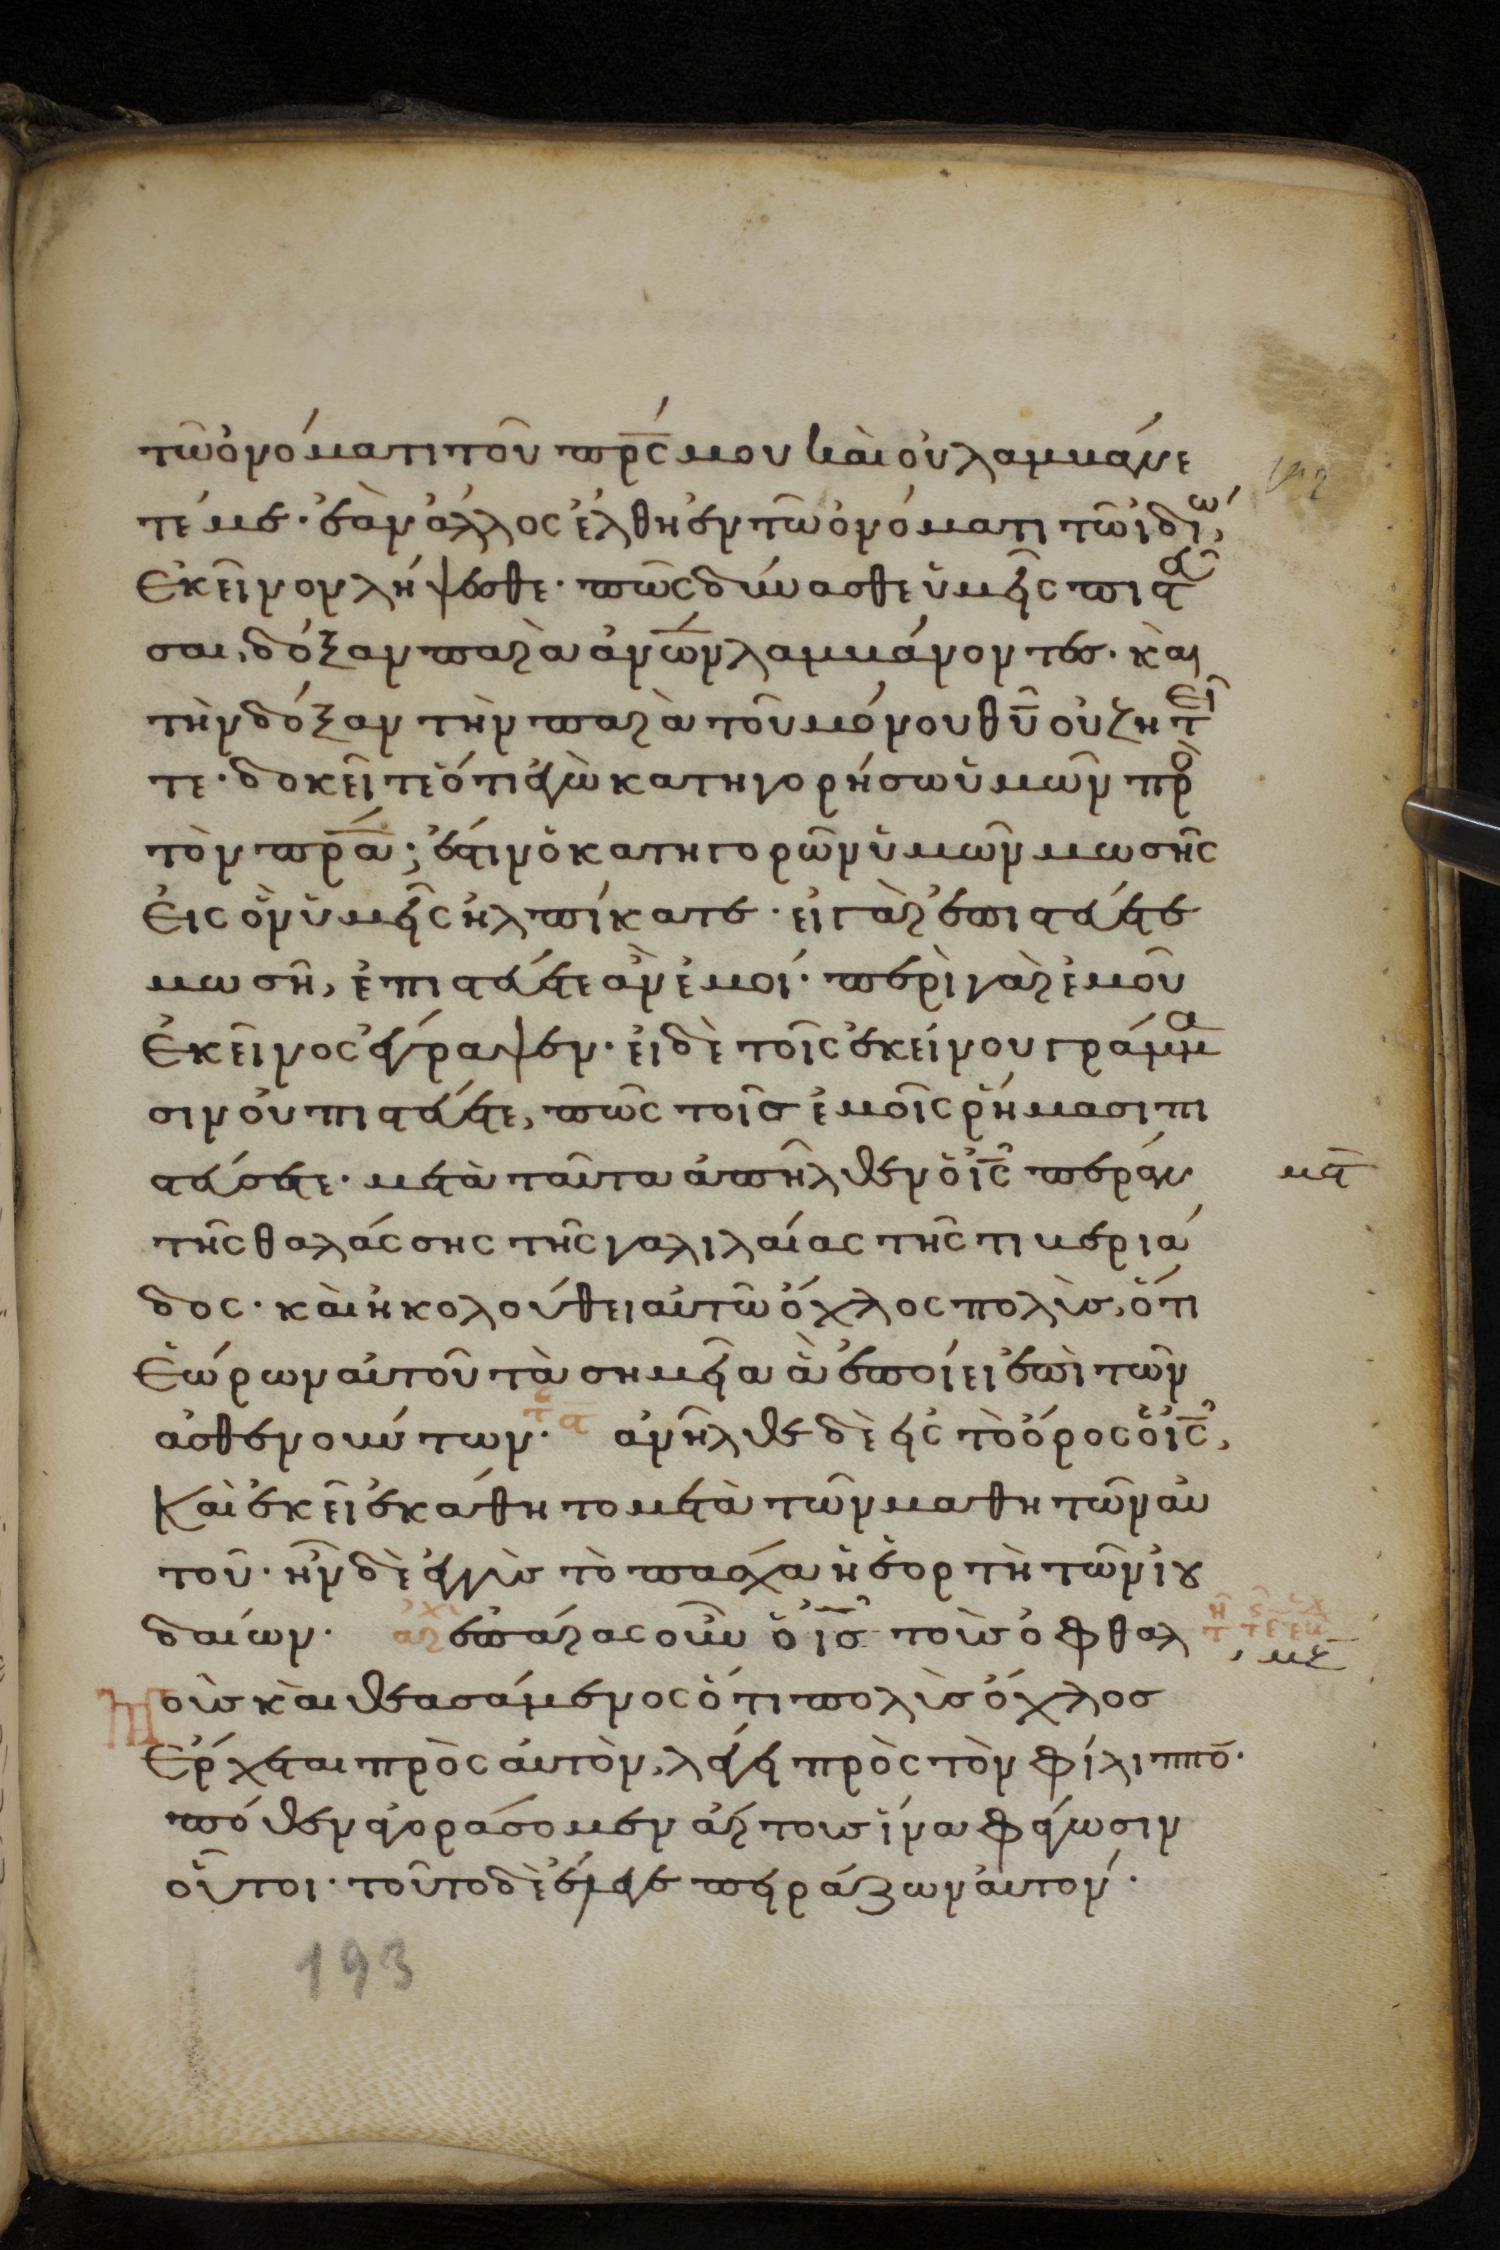 τῶ ὀνόματι τοῦ πρ̅ς μου καὶ οὐ λαμβάνε
τέ με· ἐὰν ἄλλος ἔλθη ἐν τῶ ὀνόματι τῶ ἰδίω,
ἐκεῖνον λήψεσθε· πῶς δύνασθε ὑμεῖς πιστεῦ
σαι, δόξαν παρὰ ἀν̅ω̅ν λαμβάνοντες· καὶ
τὴν δόξαν τὴν παρὰ τοῦ μόνου θ̅υ̅ οὐ ζητεῖ
τε· δοκεῖτε ὅτι ἐγὼ κατηγορήσω ὑμῶν πρὸ
τὸν πρ̅α̅; ἔστιν ὁ κατηγορῶν ὑμῶν μωσῆς
εἰς ὃν ὑμεῖς ἠλπίκατε· εἰ γὰρ ἐπιστεύετε
μωσῆ, ἐπιστεύετε ἂν ἐμοί· περὶ γὰρ ἐμοῦ
ἐκεῖνος ἔγραψεν· εἰ δὲ τοῖς ἐκείνου γράμμα
σιν οὐ πιστεύετε, πῶς τοῖς ἐμοῖς ῥήμασι πι
στεύσετε· μετὰ ταῦτα ἀπῆλθεν ὁ ι̅ς̅ πέραν
μ̅δ̅
τῆς θαλάσσης τῆς γαλιλαίας τῆς τιβεριά
δος· καὶ ἠκολούθει αὐτῶ ὄχλος πολὺς, ὅτι
ἑώρων αὐτοῦ τὰ σημεῖα ἃ ἐποίει ἐπὶ τῶν
ἀσθενούντων· ἀνῆλθε δὲ εἰς τὸ ὄρος ὁ ι̅ς̅,
καὶ ἐκεῖ ἐκάθητο μετὰ τῶν μαθητῶν αὐ
τοῦ· ἦν δὲ ἐγγὺς τὸ πάσχα ἡ ἑορτὴ τῶν ἰου
δαίων· ἀρχὴ ἐπάρας οὖν ὁ ι̅ς̅ τοὺς ὀφθαλ
μοὺς καὶ θεασάμενος ὅτι πολὺς ὄχλος
ἔρχεται πρὸς αὐτὸν, λέγει πρὸς τὸν φίλιππο̅·
πόθεν ἀγοράσομεν ἄρτους ἵνα φάγωσιν
οὗτοι· τοῦτο δὲ ἔλεγε πειράζων αὐτόν·
193